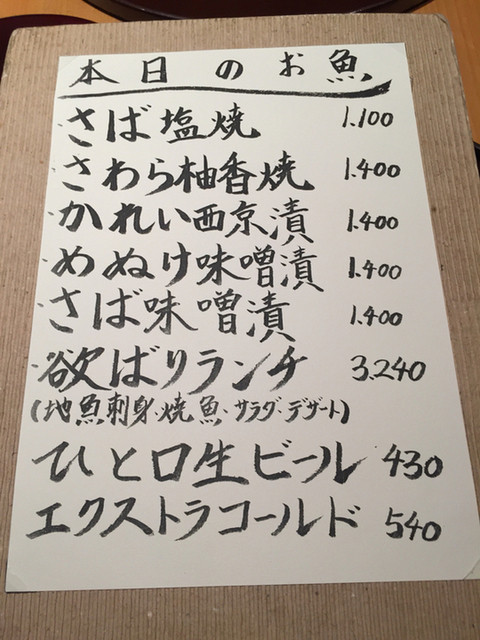 本日のお魚
・さば塩焼 1.100
・さわら柚香焼 1.400
・かれい西京漬 1.400
・めぬけ味噌漬 1.400
・さば味噌漬 1.400
・欲ばりランチ 3.240
(地魚刺身・焼魚・サラダ・デザート)
ひと口生ビール 430
エクストラコールド 540